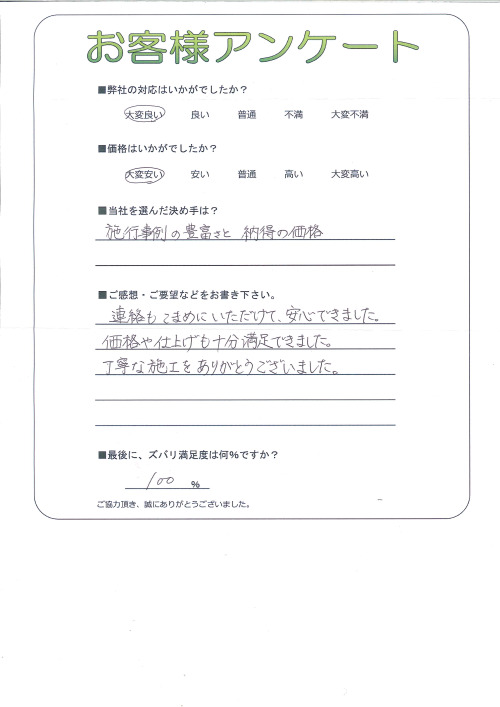 お客様アンケート
■弊社の対応はいかがでしたか？
大変良い 良い 普通 不満 大変不満
■価格はいかがでしたか？
大変安い 安い 普通 高い 大変高い
■当社を選んだ決め手は？
施行事例の豊富さと 納得の価格
■ご感想・ご要望などをお書き下さい。
連絡もこまめにいただけて、安心できました。
価格や仕上げも十分満足できました。
丁寧な施工をありがとうございました。
■最後に、ズバリ満足度は何%ですか？
100 %
ご協力頂き、誠にありがとうございました。